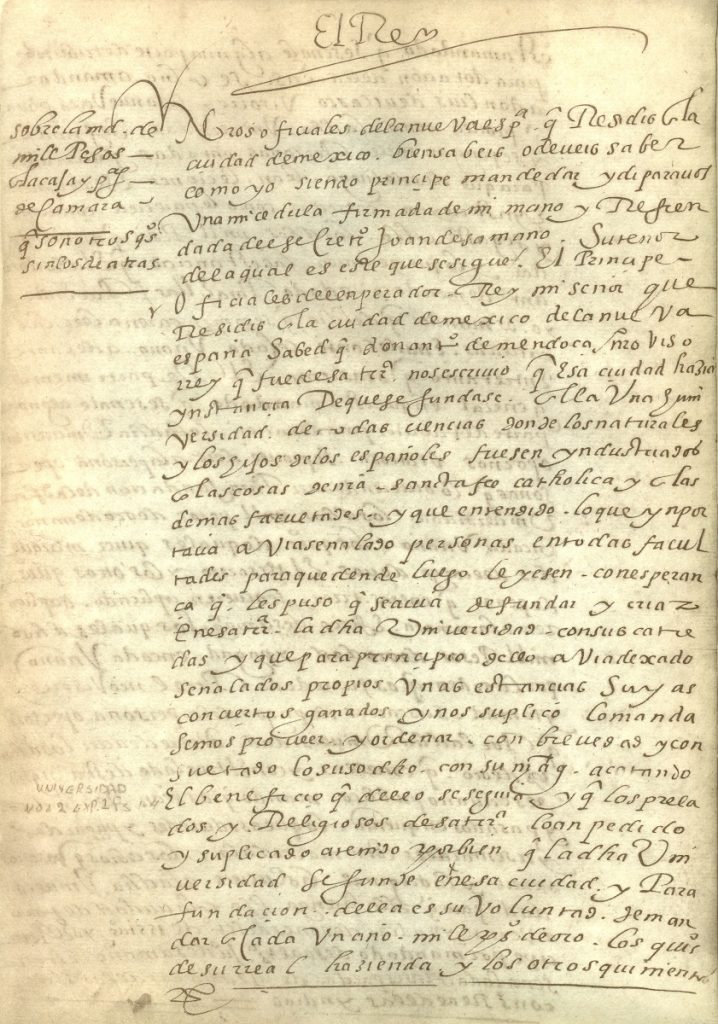 El Rey
sobre la md. de
mill Pesos
de Camara
q̃ son otros qs
sin los de atras
Nros oficiales de la nueva espª. q̃ Residis en la
ciudad de mexico. bien sabeis o deveis saber
como yo siendo principe mande dar y di para vos
Una mi cedula firmada de mi mano y Refren
dada de el secretº Joan de samano. Su tenor
de la qual es este que se sigue. El Principe
Oficiales del enperador Rey mi señor que
Residis en la ciudad de mexico de la nueva
españa Sabed q̃ don antº de mendoça, nro Viso
rrey q̃ fue desa trrª nos escrivio q̃ Esa ciudad hazia
ynstancia De que se fundase. en ella Una Uni
versidad. de todas ciencias donde los naturales
y los hijos de los españoles fuesen yndustriados
en las cosas de nrã. sancta fee catholica y en las
demas facultades. y que entendido. lo que ynpor
tava avia señalado personas en todas facul
tades para que dende luego leyesen. con esperan
ça q̃. les puso q̃ se avia de fundar y criar
En esa trrª. la dha Universidad. con sus cate
das y que para principio dello avia dexado
señalados propios Unas estancias Suyas
con ciertos ganados y nos suplicó lo manda
semos proveer. y ordenar. con brevedad y con
sultado lo suso dho. con su magᵗ. acatando
El beneficio q̃ dello se seguira y q̃ los prela
dos y Religiosos desa trrª lo an pedido
y suplicado a tenido por bien q̃ la dha Uni
versidad se funde en esa ciudad. y Para
fundacion. della es su Voluntad. de man
dar en cada Un año. mill ps de oro. los quis
de su real hazienda y los otros quinientos
UNIVERSIDAD